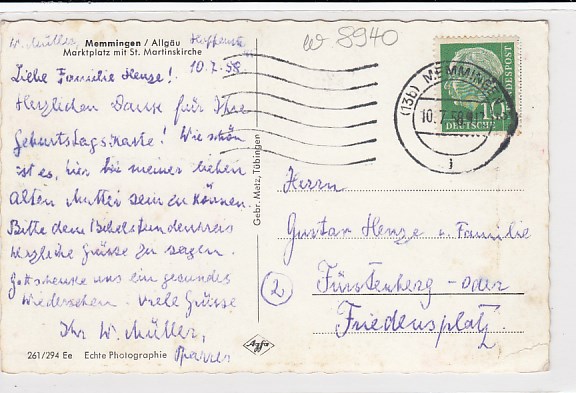 W. Müller,
Memmingen / Allgäu
Marktplatz mit St. Martinskirche
w 8940
10.7.58
Liebe Familie Henze!
Herzlichen Dank für Ihre
Geburtstagskarte! Wie schön
ist es, hier bei meiner lieben
alten Mutter sein zu können.
Bitte dem Bibelstundenkreis
herzliche Grüsse zu sagen.
Gott schenke uns ein gesundes
Wiedersehen. Viele Grüsse
Ihr W. Müller,
Pfarrer
261/294 Ee Echte Photographie
Gebr. Metz, Tübingen
Agfa
(13b) MEMMINGEN
10.7.58
DEUTSCHE
BUNDESPOST
10
Herrn
Gustav Henze u. Familie
2
Fürstenberg - Oder
Friedensplatz